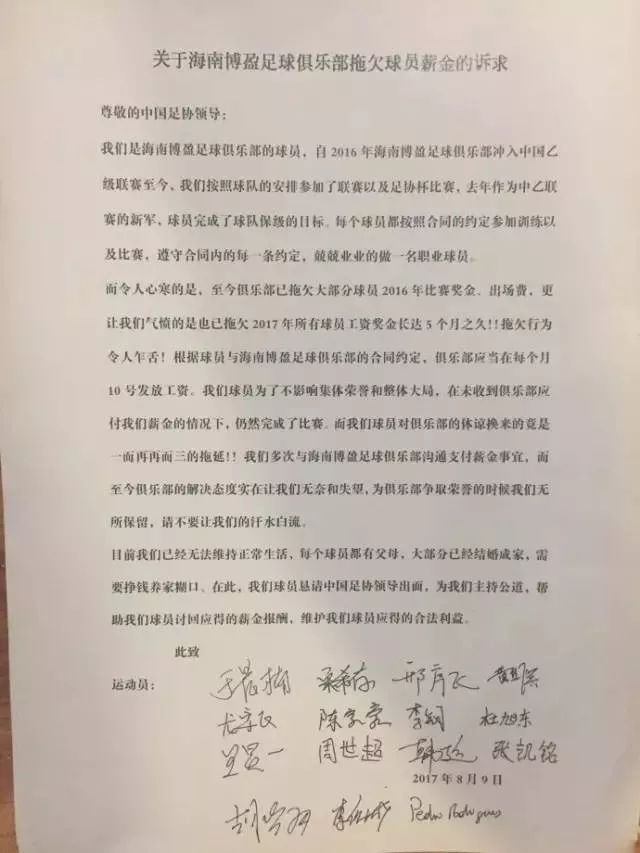 关于海南博盈足球俱乐部拖欠球员薪金的诉求
尊敬的中国足协领导：
我们是海南博盈足球俱乐部的球员，自 2016 年海南博盈足球俱乐部冲入中国乙
级联赛至今、我们按照球队的安排参加了联赛以及足协杯比赛，去年作为中乙联
赛的新军，球员完成了球队保级的目标。每个球员都按照合同的约定参加训练以
及比赛，遵守合同内的每一条约定，兢兢业业的做一名职业球员。
而令人心寒的是，至今俱乐部已拖欠大部分球员 2016 年比赛奖金、出场费，更
让我们气愤的是也已拖欠 2017 年所有球员工资奖金长达 5 个月之久!!拖欠行为
令人乍舌！根据球员与海南博盈足球俱乐部的合同约定，俱乐部应当在每个月
10 号发放工资。我们球员为了不影响集体荣誉和整体大局，在未收到俱乐部应
付我们薪金的情况下，仍然完成了比赛。而我们球员对俱乐部的体谅换来的竟是
一而再再而三的拖延!! 我们多次与海南博盈足球俱乐部沟通支付薪金事宜，而
至今俱乐部的解决态度实在让我们无奈和失望，为俱乐部争取荣誉的时候我们无
所保留，请不要让我们的汗水白流。
目前我们已经无法维持正常生活，每个球员都有父母，大部分已经结婚成家，需
要挣钱养家糊口。在此，我们球员恳请中国足协领导出面，为我们主持公道，帮
助我们球员讨回应得的薪金报酬，维护我们球员应得的合法利益。
此致
运动员：
杜旭东
周世超 张凯铭
2017 年 8 月 9 日
Pedro Rodrigues